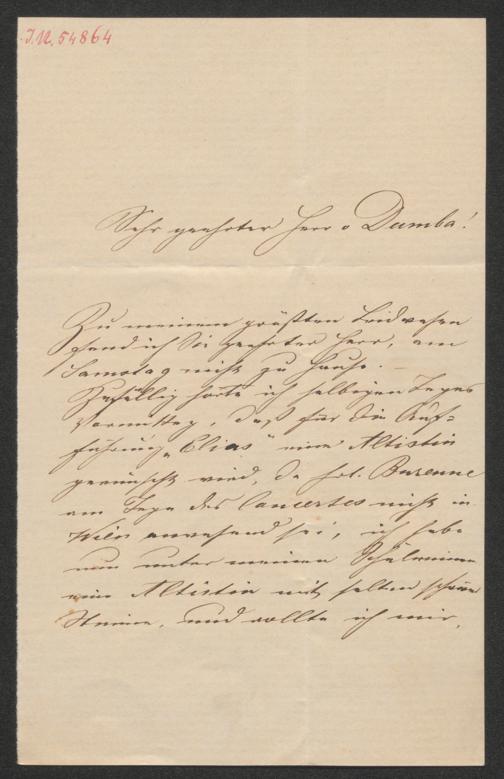 J.N. 54864
Sehr geehrter Herr v Dumba!
Zu meinem größten Leidwesen
fand ich Sie geehrter Herr, am
Samstag nicht zu Hause. –
Zufällig hörte ich selbigen Tages
Vormittag, daß für die Auf=
führung „Elias" eine Altistin
gewünscht wird, da Frl. Burenne
am Tage des Concertes nicht in
Wien anwesend sei, ich habe
nun unter meinen Schülerinnen
eine Altistin mit selten schöner
Stimme, und wollte ich mir,